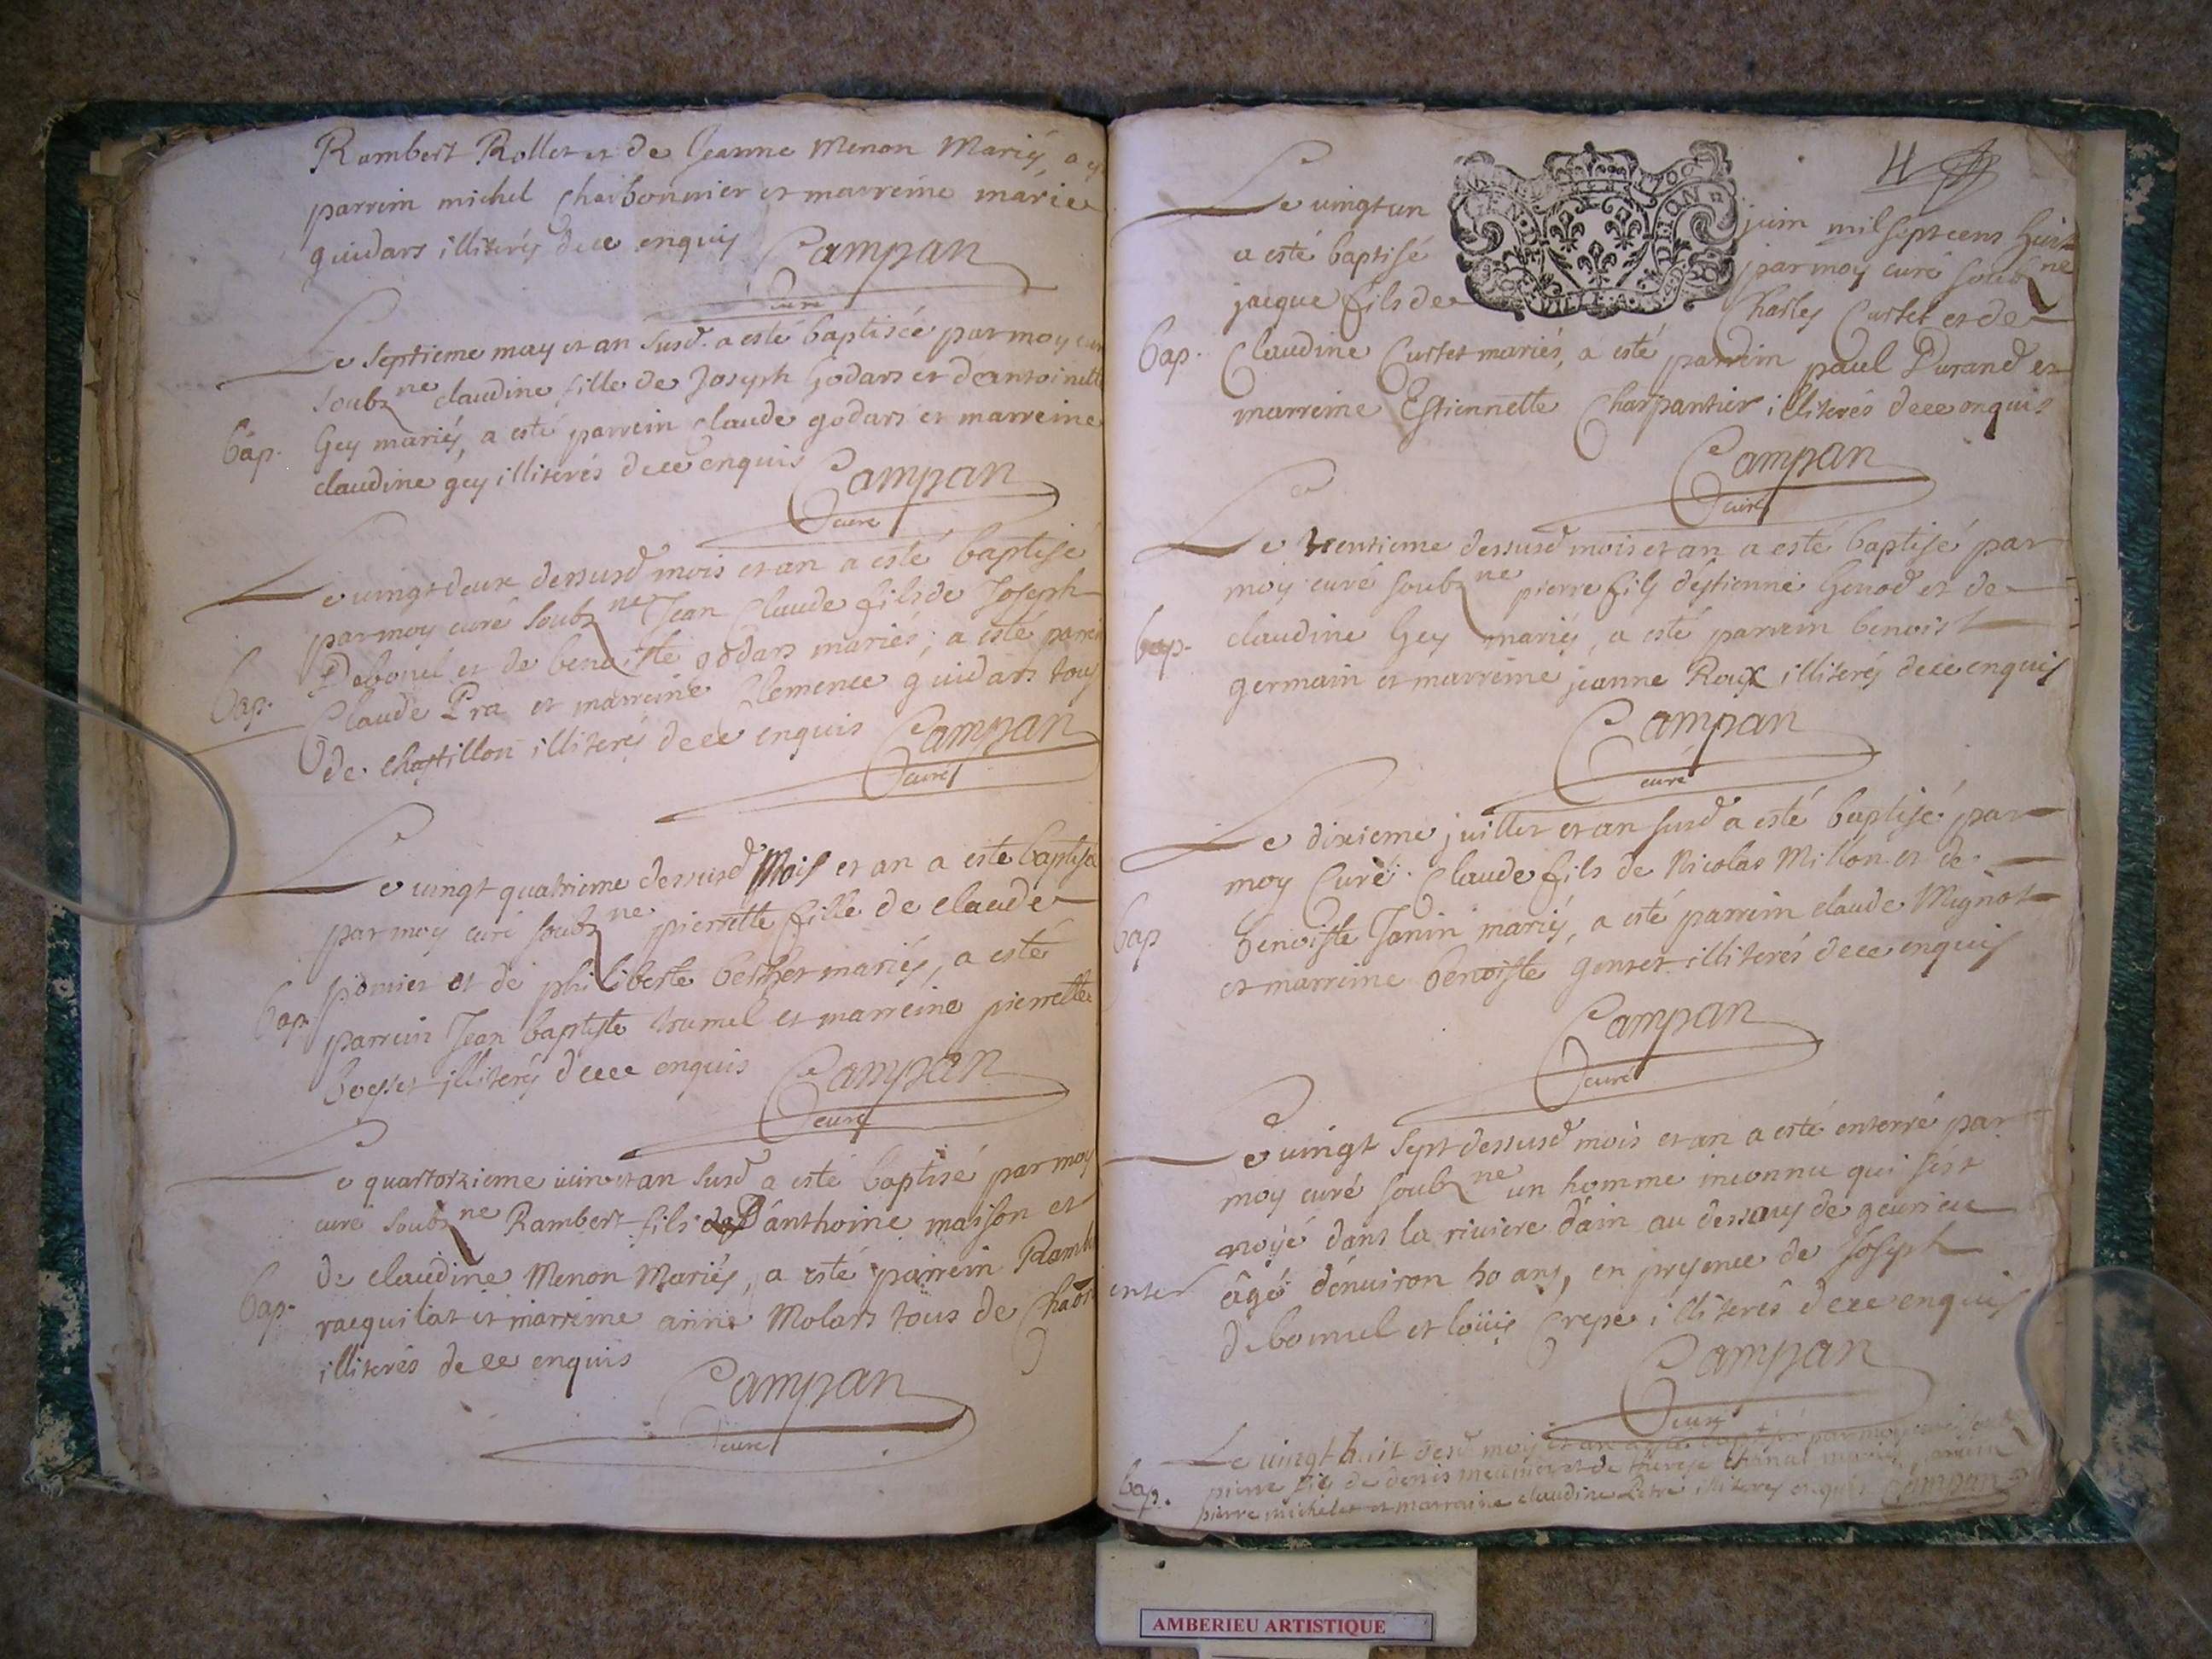 Rambert Rollet et de Jeanne Menon Mariés a
parrein michel Charbonnier et marreine marie
guidars illiterés dece enquis Campan
curé
Le septieme may et an susd. a esté baptisée par moy
soubz ne claudine fille de Joseph Godars et d'antoinette
bap. Gey mariés, a esté parrein claude godars et marreine
claudine gey illiterés dece enquis Campan
curé
Le vingt deux dessusd mois et an a esté baptisé
par moy curé soubz ne Jean Claude fils de Joseph
Debonel et de benoiste godars mariés, a esté
bap. Claude Pra et marreine Clemence guidars tous
de chastillon illiterés dece enquis Campan
curé
Le vingt quatrieme dessusd Mois et an a esté baptisé
par moy curé soubz ne pierrette fille de claude
pomier et de philiberte mariés, a esté
bap. parrein Jean baptiste trumel et marreine pierrette
illiterés dece enquis Campan
curé
Le quartorzieme et an susd a esté baptisé par moy
curé soubz ne Rambert fils D'anthoine maison et
de claudine Menon Mariés, a esté parrein
bap. racquilat et marreine anne Molars tous de
illiterés de ce enquis
Campan
curé
4
Le vingt un juin mil sept cens huit
a esté baptisé par moy curé soubz ne
jacque fils de Charles Curtet et de
bap. Claudine Curtet mariés, a esté parrein paul Durand et
marreine Estiennette Charpantier illiterés dece enquis
Campan
curé
Le trentieme dessusd mois et an a esté baptisé par
moy curé soubz ne pierre fils d'estienne Genod et de
bap. claudine Gey mariés, a esté parrein benoist
germain et marreine jeanne Roux illiterés dece enquis
Campan
curé
Le dixieme juillet et an susd a esté baptisé par
moy Curé Claude fils de Nicolas Millon et de
bap benoiste Janin mariés, a esté parrein claude Mignot
et marreine benoiste illiterés dece enquis
Campan
curé
Le vingt sept dessusd mois et an a esté enterré par
moy curé soubz ne un homme inconnu qui s'est
noyé dans la riviere d'ain au dessous de gevrieu
enter âgé d'environ 40 ans, en presence de Joseph
debonnel et loüis Crepe illiterés dece enquis
Campan
curé
Le vingt huit desd mois et an a esté baptisé par moy
pierre fils de denis meunier et de therese mariés
bap. pierre michelet et marraine claudine illiterés enquis Campan
AMBERIEU ARTISTIQUE